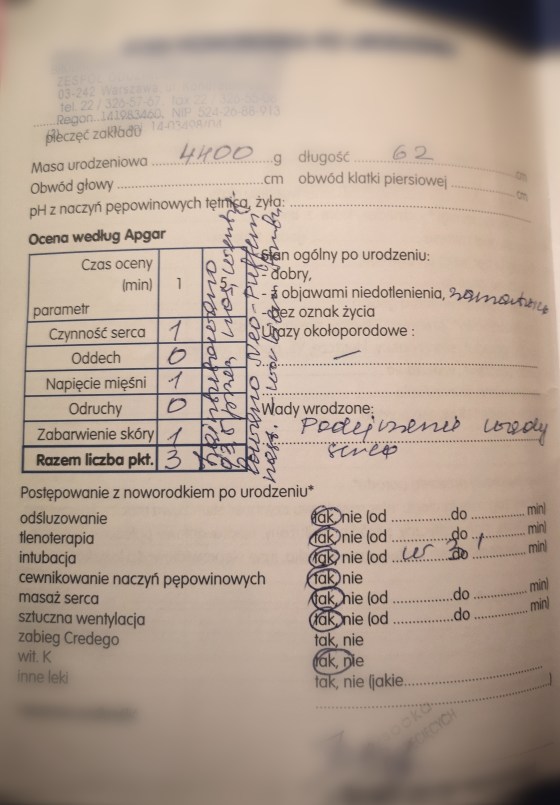 03-242 Warszawa
tel. 22 / 326-57-67, fax 22 /
Regon 141983460, NIP 524-26-88-913
pieczęć zakładu
Masa urodzeniowa 4400 g długość 62 cm
Obwód głowy cm obwód klatki piersiowej cm
pH z naczyń pępowinowych tętnica, żyła:
Ocena według Apgar
Czas oceny
(min) 1
parametr
Czynność serca 1
Oddech 0
Napięcie mięśni 1
Odruchy 0
Zabarwienie skóry 1
Razem liczba pkt. 3
Stan ogólny po urodzeniu:
- dobry,
- z objawami niedotlenienia, zamartwica
- bez oznak życia
Urazy okołoporodowe : —
Wady wrodzone:
Podejrzenie wady
serca
Postępowanie z noworodkiem po urodzeniu*
odśluzowanie tak, nie (od do min)
tlenoterapia tak, nie (od do min)
intubacja tak, nie (od w 3 do min)
cewnikowanie naczyń pępowinowych tak, nie
masaż serca tak, nie (od do min)
sztuczna wentylacja tak, nie (od do min)
zabieg Credego tak, nie
wit. K tak, nie
inne leki tak, nie (jakie )